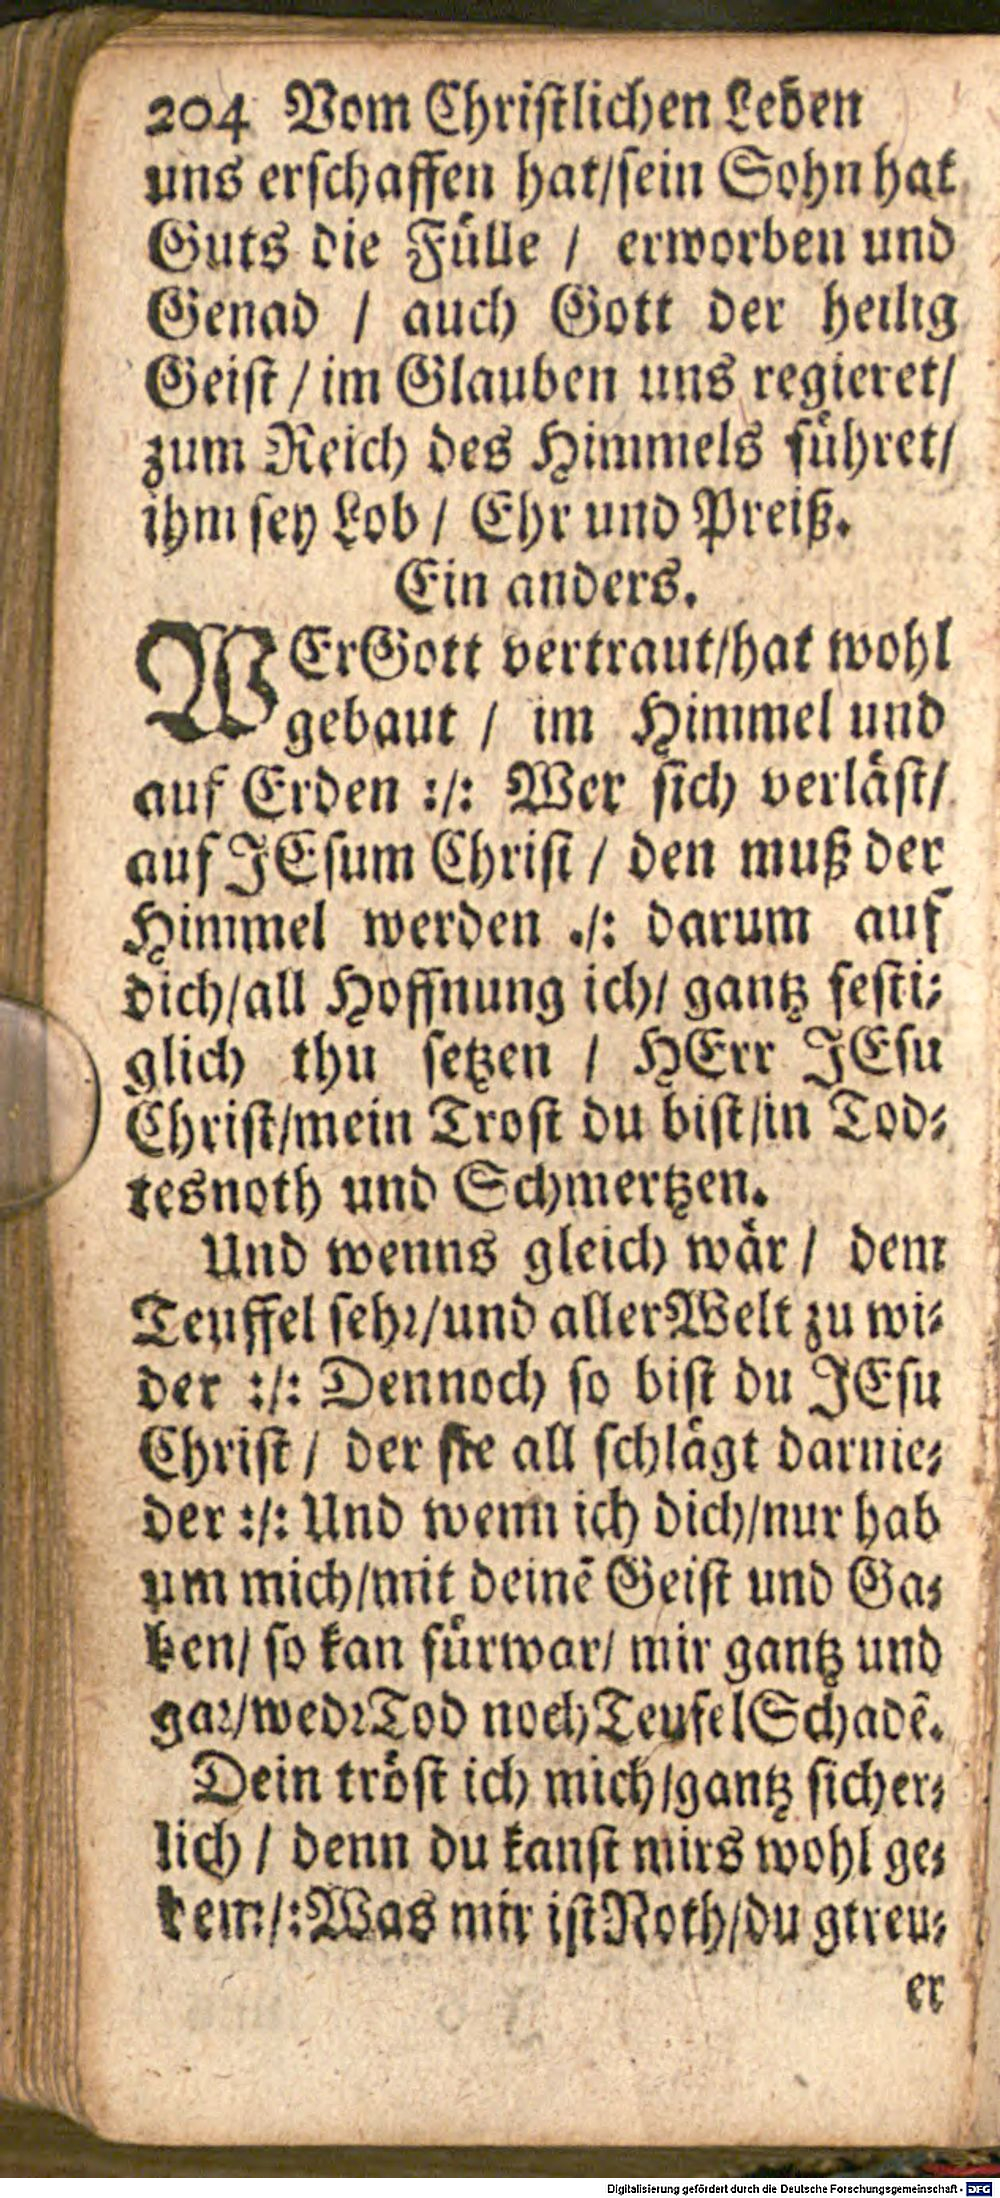 204 Vom Christlichen Leben
uns erschaffen hat/sein Sohn hat
Guts die Fülle / erworben und
Genad / auch Gott der heilig
Geist / im Glauben uns regieret/
zum Reich des Himmels führet/
ihm sey Lob / Ehr und Preiß.
Ein anders.
WErGott vertraut/hat wohl
gebaut / im Himmel und
auf Erden :/: Wer sich verläst/
auf JEsum Christ / den muß der
Himmel werden ./: darum auf
dich/all Hoffnung ich/ gantz festi-
glich thu setzen / HErr JEsu
Christ/mein Trost du bist/in Tod-
tesnoth und Schmertzen.
Und wenns gleich wär / dem
Teuffel sehr/und aller Welt zu wi-
der :/: Dennoch so bist du JEsu
Christ / der sie all schlägt darnie-
der :/: Und wenn ich dich/nur hab
um mich/mit deinē Geist und Ga-
ben/ so kan fürwar/ mir gantz und
gar/wedr Tod noch Teufel Schadē.
Dein tröst ich mich/gantz sicher-
lich / denn du kanst mirs wohl ge-
ben:/:Was mir ist Noth/du gtreu-
er
Digitalisierung gefördert durch die Deutsche Forschungsgemeinschaft - DFG